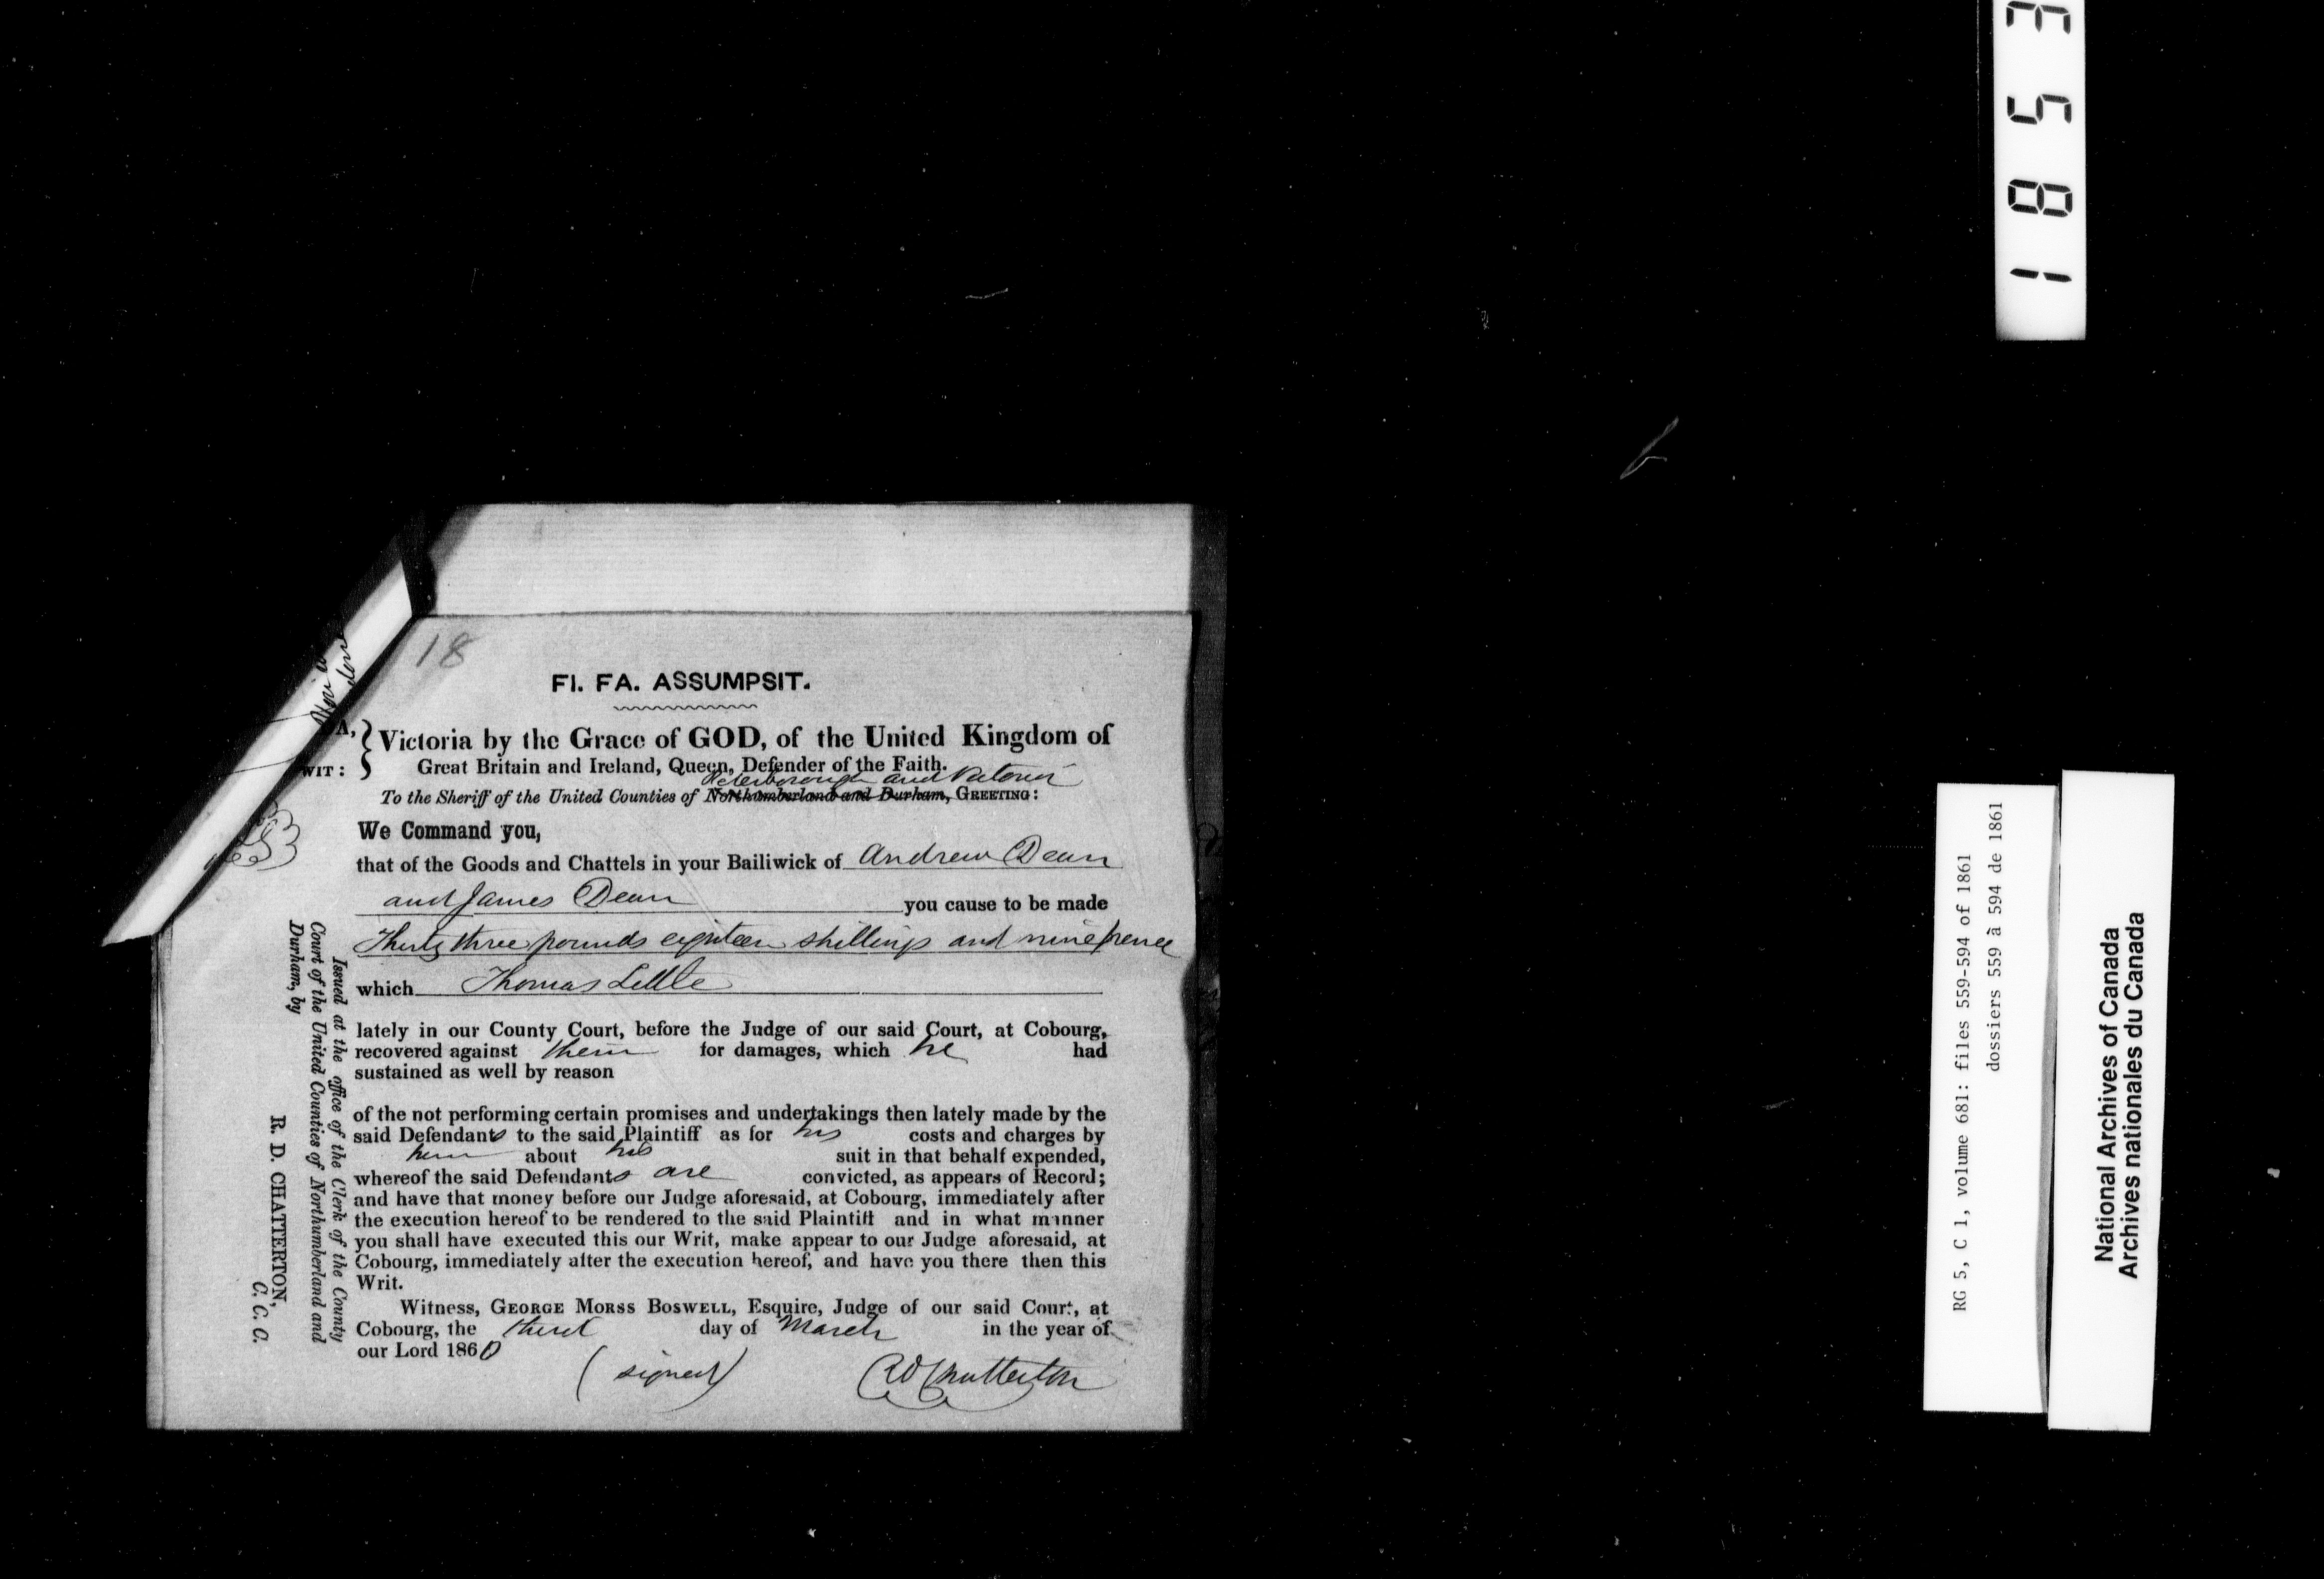 18
FI. FA. ASSUMPSIT.
A,
WIT:
Victoria by the Grace of GOD, of the United Kingdom of
Great Britain and Ireland, Queen, Defender of the Faith.
Peterborough and Victoria
To the Sheriff of the United Counties of Northumberland and Durham, GREETING:
We Command you,
that of the Goods and Chattels in your Bailiwick of Andrew Dean
and James Dean you cause to be made
Thirty three pounds eighteen shillings and nine pence
which Thomas Little
lately in our County Court, before the Judge of our said Court, at Cobourg,
recovered against them for damages, which he had
sustained as well by reason
of the not performing certain promises and undertakings then lately made by the
said Defendants to the said Plaintiff as for his costs and charges by
him about his suit in that behalf expended,
whereof the said Defendants are convicted, as appears of Record;
and have that money before our Judge aforesaid, at Cobourg, immediately after
the execution hereof to be rendered to the said Plaintiff and in what manner
you shall have executed this our Writ, make appear to our Judge aforesaid, at
Cobourg, immediately after the execution hereof, and have you there then this
Writ.
Witness, GEORGE MORSS BOSWELL, Esquire, Judge of our said Court, at
Cobourg, the third day of March in the year of
our Lord 1860
(signed) RD Chatterton
Issued at the office of the Clerk of the County
Court of the United Counties of Northumberland and
Durham, by
R. D. CHATTERTON,
C. C. C.
3581
RG 5, C 1, volume 681: files 559-594 of 1861
dossiers 559 à 594 de 1861
National Archives of Canada
Archives nationales du Canada